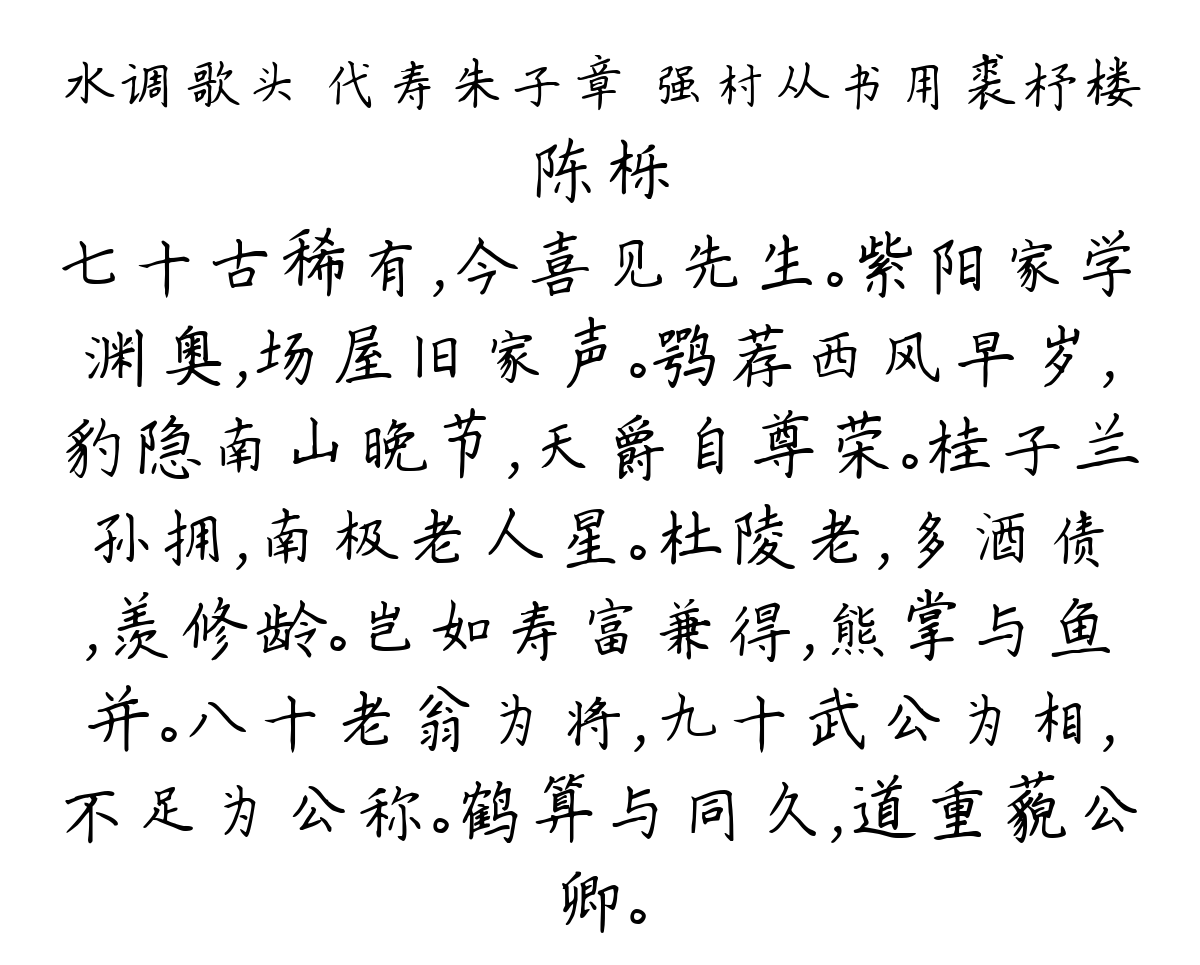 水调歌头 代寿朱子章 强村从书用裘杼楼
陈栎
七十古稀有,今喜见先生。紫阳家学
渊奥,场屋旧家声。鹗荐西风早岁,
豹隐南山晚节,天爵自尊荣。桂子兰
孙拥,南极老人星。杜陵老,多酒债
,羡修龄。岂如寿富兼得,熊掌与鱼
并。八十老翁为将,九十武公为相,
不足为公称。鹤算与同久,道重藐公
卿。